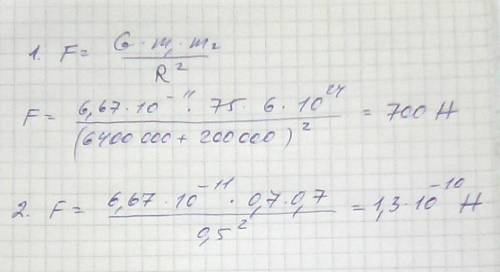 1. F = G · m₁ · m₂ / R²
F = 6,67 · 10⁻¹¹ · 75 · 6 · 10²⁴ / (6400 000 + 200 000)² = 700 Н
2. F = 6,67 · 10⁻¹¹ · 0,7 · 0,7 / 0,5² = 1,3 · 10⁻¹⁰ Н